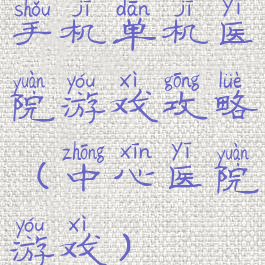 shǒu jī dān jī yī
手机单机医
yuàn yóu xì gōng lüè
院游戏攻略
zhōng xīn yī yuàn
（中心医院
yóu xì
游戏）